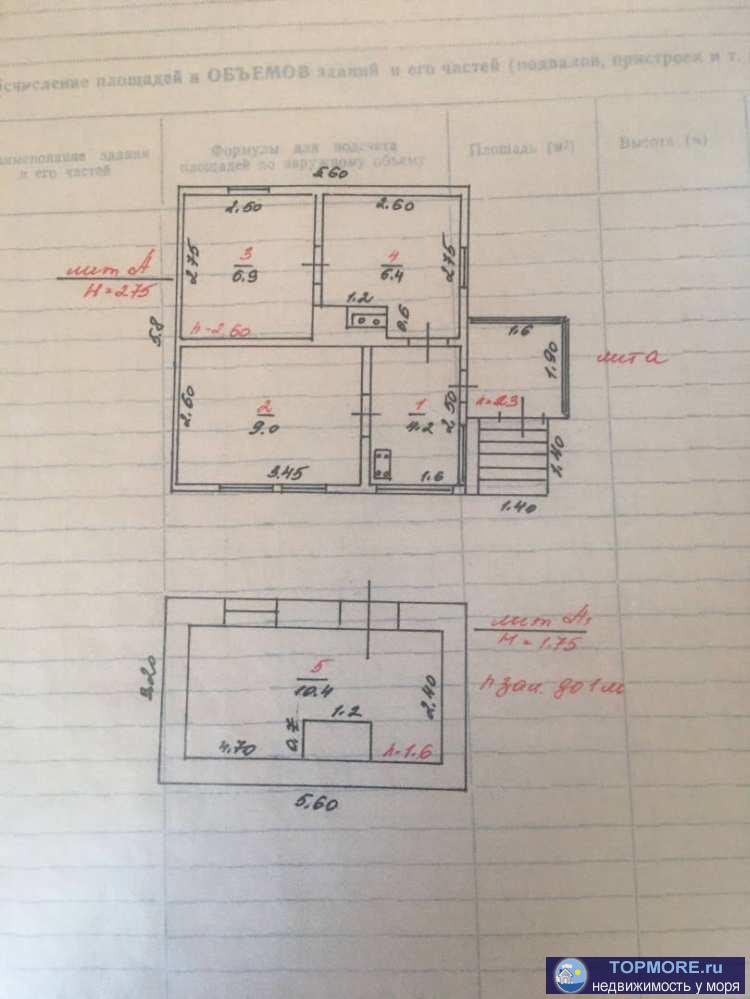 счисление площадей и ОБЪЕМОВ зданий и его частей (подвалов, пристроек и т.
аименование здания и его частей
Формулы для подсчета площадей по наружному обмеру
Площадь (м²)
Высота (м)
5.60
2.50
2.60
2.75
3
6.9
4
6.4
2.75
лит А
H=2.75
1.2
0.6
h=2.60
5.8
1.6
1.90
лит а
2.60
2
9.0
1
4.2
2.50
h=2.3
3.45
1.6
1.40
1.40
лит А₁
H=1.75
3.20
5
10.4
2.40
h зал. до 1 м
1.2
0.7
4.70
h-1.6
5.60
TOPMORE.ru
недвижимость у моря